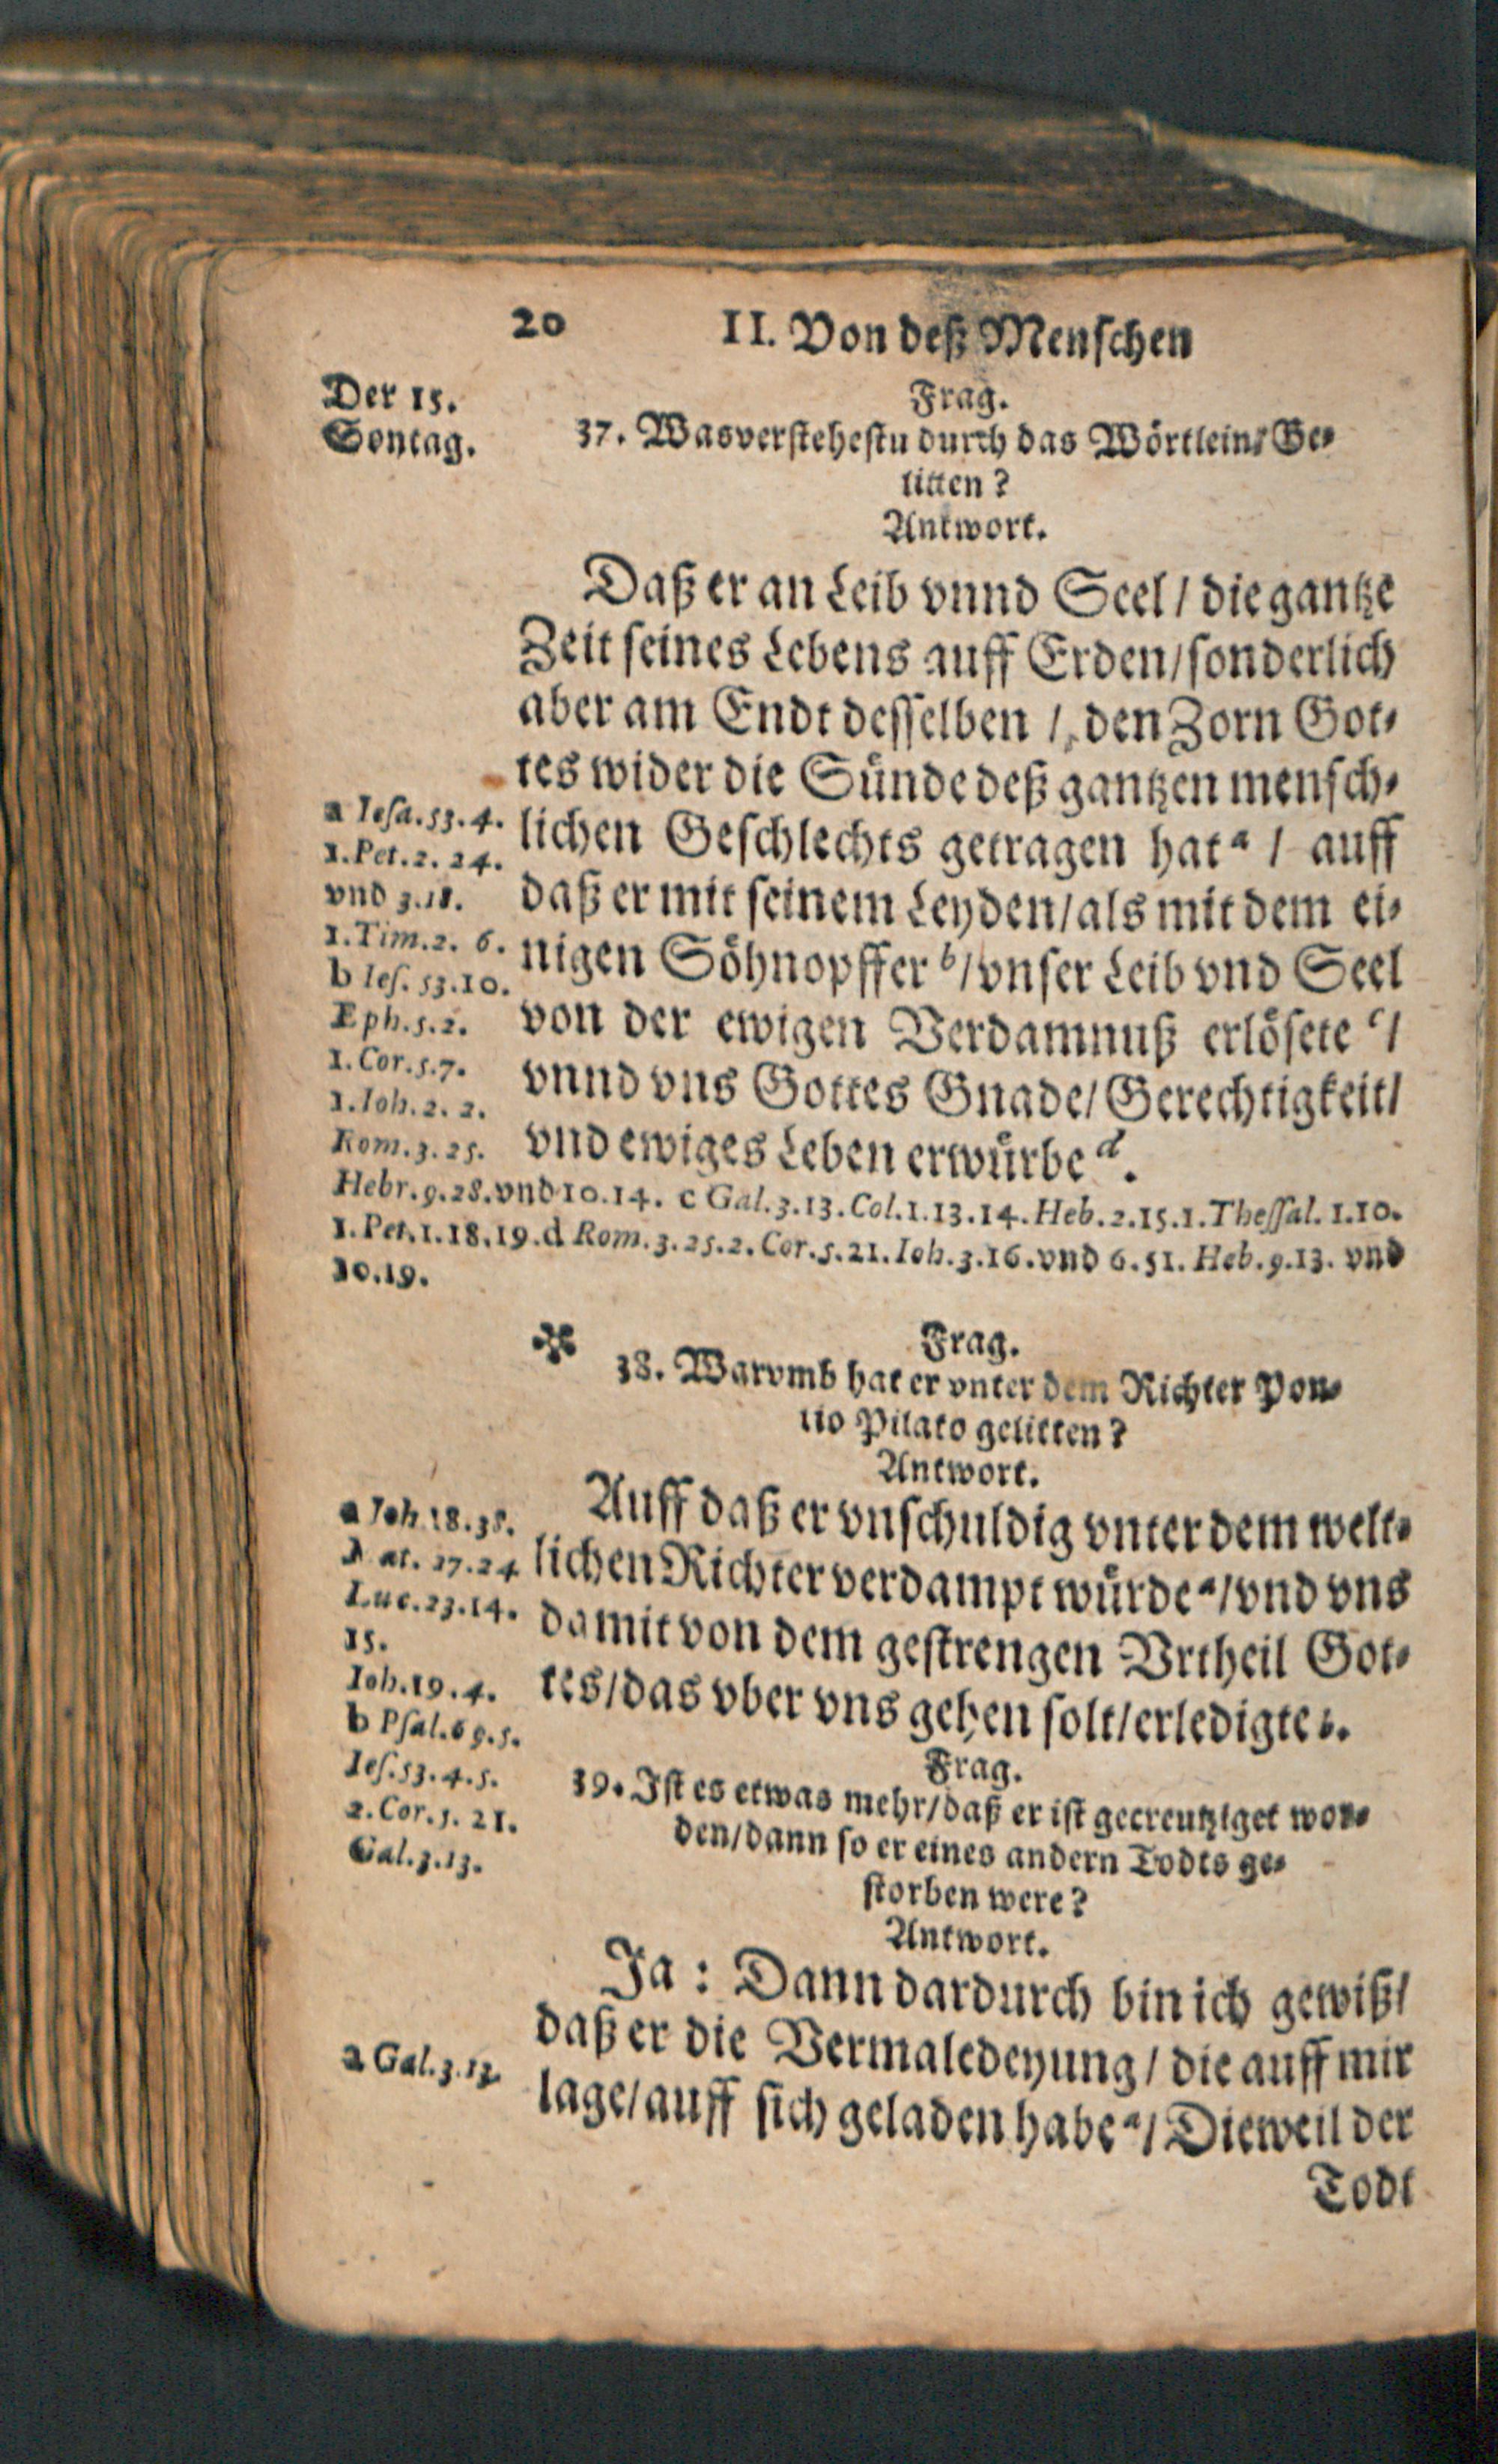 20 II. Von deß Menschen
Der 15.
Sontag.
Frag.
37. Was verstehestu durch das Wörtlein/ Ge-
litten?
Antwort.
Daß er an Leib vnnd Seel / die gantze
Zeit seines Lebens auff Erden/sonderlich
aber am Endt desselben / den Zorn Got-
tes wider die Sünde deß gantzen mensch-
lichen Geschlechts getragen hat a / auff
daß er mit seinem Leyden/als mit dem ei-
nigen Söhnopffer b/vnser Leib vnd Seel
von der ewigen Verdamnuß erlösete c/
vnnd vns Gottes Gnade/Gerechtigkeit/
vnd ewiges Leben erwürbe d.
a Iesa.53.4.
1.Pet.2.24.
vnd 3.18.
1.Tim.2.6.
b Ies.53.10.
Eph.5.2.
1.Cor.5.7.
1.Ioh.2.2.
Rom.3.25.
Hebr.9.28.vnd 10.14. c Gal.3.13.Col.1.13.14.Heb.2.15.1.Thessal.1.10.
1.Pet.1.18.19.d Rom.3.25.2.Cor.5.21.Ioh.3.16.vnd 6.51.Heb.9.13. vnd
10.19.
Frag.
38. Warvmb hat er vnter dem Richter Pon-
tio Pilato gelitten?
Antwort.
Auff daß er vnschuldig vnter dem welt-
lichen Richter verdampt würde a/vnd vns
damit von dem gestrengen Vrtheil Got-
tes/das vber vns gehen solt/erledigte b.
a Ioh.18.38.
Mat.27.24
Luc.23.14.
15.
Ioh.19.4.
b Psal.69.5.
Ies.53.4.5.
2.Cor.5.21.
Gal.3.13.
Frag.
39. Ist es etwas mehr/daß er ist gecreutziget wor-
den/dann so er eines andern Todts ge-
storben were?
Antwort.
Ja : Dann dardurch bin ich gewiß/
daß er die Vermaledeyung / die auff mir
lage/auff sich geladen habe a/Dieweil der
a Gal.3.13.
Todt